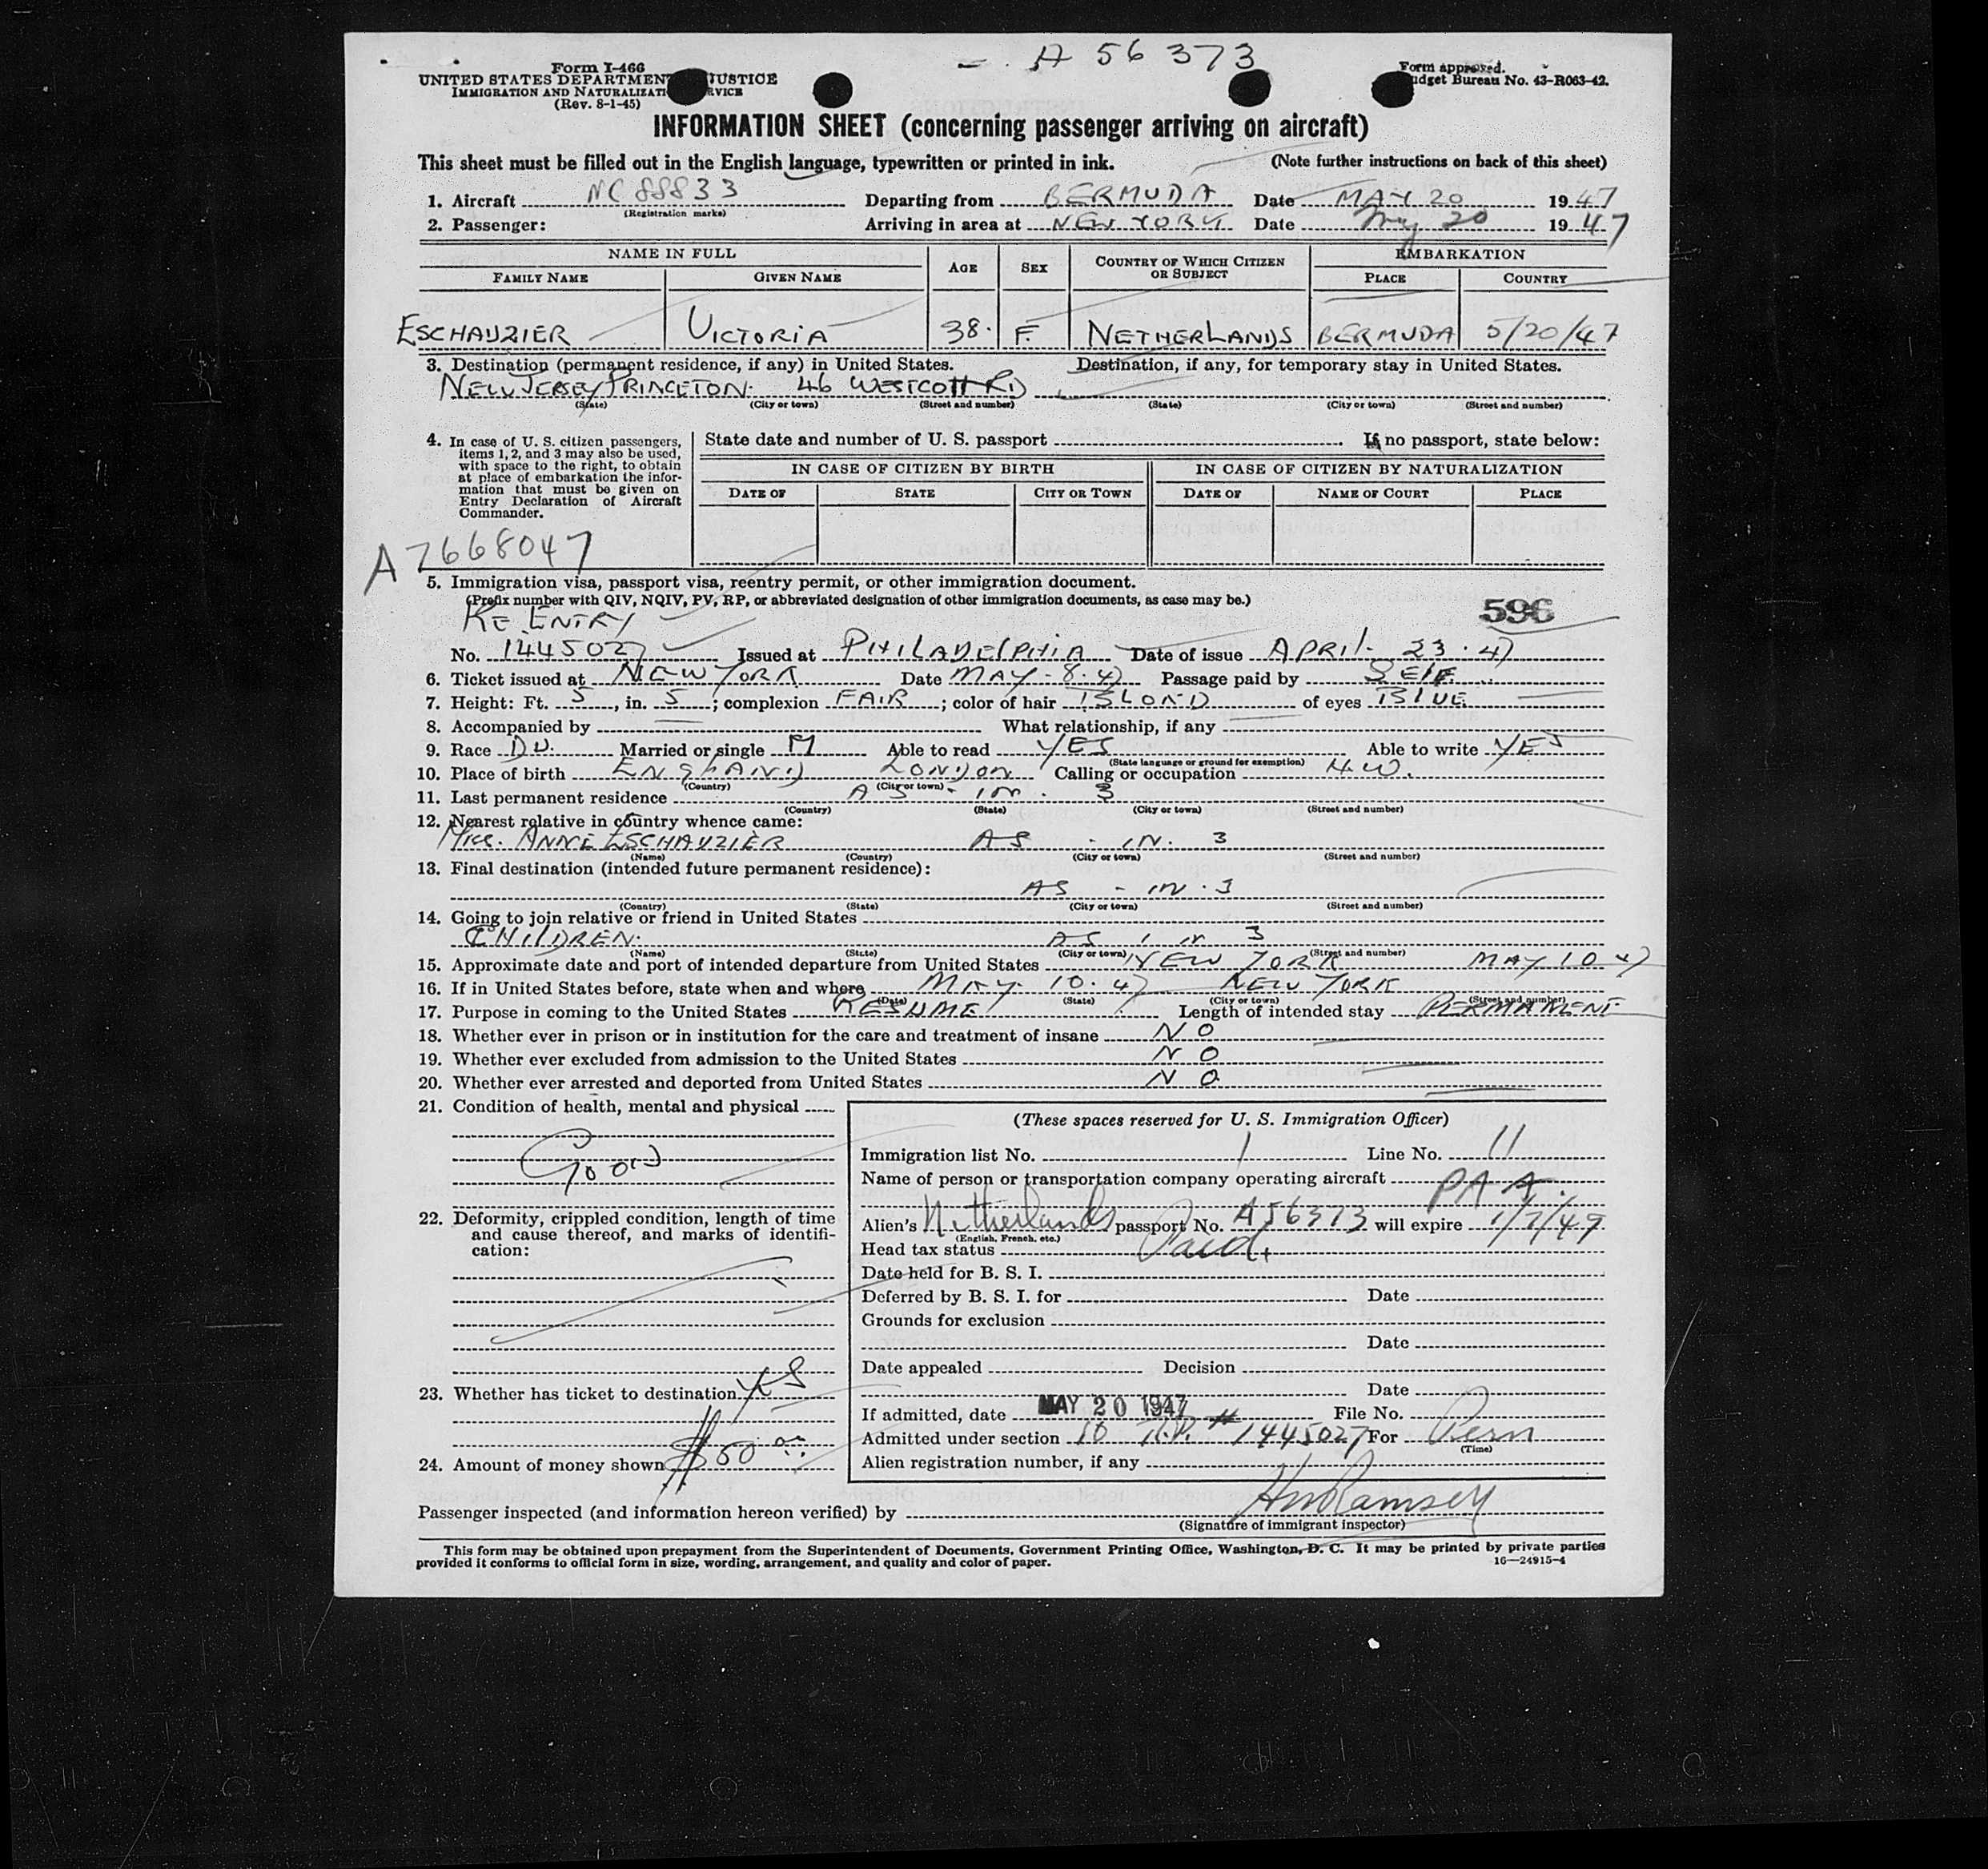 A 56373
Form I-466
UNITED STATES DEPARTMENT JUSTICE
IMMIGRATION AND NATURALIZATI RVICE
(Rev. 8-1-45)
Form approved.
udget Bureau No. 43-R063-42.
INFORMATION SHEET (concerning passenger arriving on aircraft)
This sheet must be filled out in the English language, typewritten or printed in ink. (Note further instructions on back of this sheet)
1. Aircraft NC 88833 Departing from BERMUDA Date MAY 20 1947
(Registration marks)
2. Passenger: Arriving in area at NEW YORK Date May 20 1947
NAME IN FULL AGE SEX COUNTRY OF WHICH CITIZEN OR SUBJECT EMBARKATION
FAMILY NAME GIVEN NAME PLACE COUNTRY
ESCHAUZIER VICTORIA 38. F. NETHERLANDS BERMUDA 5/20/47
3. Destination (permanent residence, if any) in United States. Destination, if any, for temporary stay in United States.
NEW JERSEY PRINCETON. 46 WESTCOTT RD
(State) (City or town) (Street and number) (State) (City or town) (Street and number)
4. In case of U. S. citizen passengers, items 1, 2, and 3 may also be used, with space to the right, to obtain at place of embarkation the information that must be given on Entry Declaration of Aircraft Commander.
State date and number of U. S. passport If no passport, state below:
IN CASE OF CITIZEN BY BIRTH IN CASE OF CITIZEN BY NATURALIZATION
DATE OF STATE CITY OR TOWN DATE OF NAME OF COURT PLACE
A7668047
5. Immigration visa, passport visa, reentry permit, or other immigration document.
(Prefix number with QIV, NQIV, PV, RP, or abbreviated designation of other immigration documents, as case may be.)
596
RE ENTRY
No. 1445027 Issued at PHILADELPHIA Date of issue APRIL. 23. 47
6. Ticket issued at NEW YORK Date MAY - 8. 47 Passage paid by SELF.
7. Height: Ft. 5, in. 5; complexion FAIR; color of hair BLOND of eyes BLUE
8. Accompanied by What relationship, if any
9. Race DU. Married or single M Able to read YES Able to write YES
(State language or ground for exemption)
10. Place of birth ENGLAND LONDON Calling or occupation H.W.
(Country) (City or town)
11. Last permanent residence AS - IN. 3
(Country) (State) (City or town) (Street and number)
12. Nearest relative in country whence came:
ANNE ESCHAUZIER AS - IN. 3
(Name) (Country) (City or town) (Street and number)
13. Final destination (intended future permanent residence):
AS - IN. 3
(Country) (State) (City or town) (Street and number)
14. Going to join relative or friend in United States
CHILDREN. AS IN 3
(Name) (State) (City or town) (Street and number)
15. Approximate date and port of intended departure from United States NEW YORK MAY 10 47
16. If in United States before, state when and where MAY. 10. 47 NEW YORK
(Date) (State) (City or town) (Street and number)
17. Purpose in coming to the United States RESUME Length of intended stay PERMANENT
18. Whether ever in prison or in institution for the care and treatment of insane NO
19. Whether ever excluded from admission to the United States NO
20. Whether ever arrested and deported from United States NO
21. Condition of health, mental and physical
GOOD
22. Deformity, crippled condition, length of time and cause thereof, and marks of identification:
23. Whether has ticket to destination YES
24. Amount of money shown $50.00
(These spaces reserved for U. S. Immigration Officer)
Immigration list No. 1 Line No. 11
Name of person or transportation company operating aircraft PAA.
Alien's Netherlands passport No. A56373 will expire 1/7/49
(English, French, etc.)
Head tax status Paid
Date held for B. S. I.
Deferred by B. S. I. for Date
Grounds for exclusion
Date
Date appealed Decision
Date
If admitted, date MAY 20 1947 File No.
Admitted under section 10 R.P. # 1445027 For Perm
(Time)
Alien registration number, if any
Passenger inspected (and information hereon verified) by HW Ramsey
(Signature of immigrant inspector)
This form may be obtained upon prepayment from the Superintendent of Documents, Government Printing Office, Washington, D. C. It may be printed by private parties
provided it conforms to official form in size, wording, arrangement, and quality and color of paper. 16—24915-4